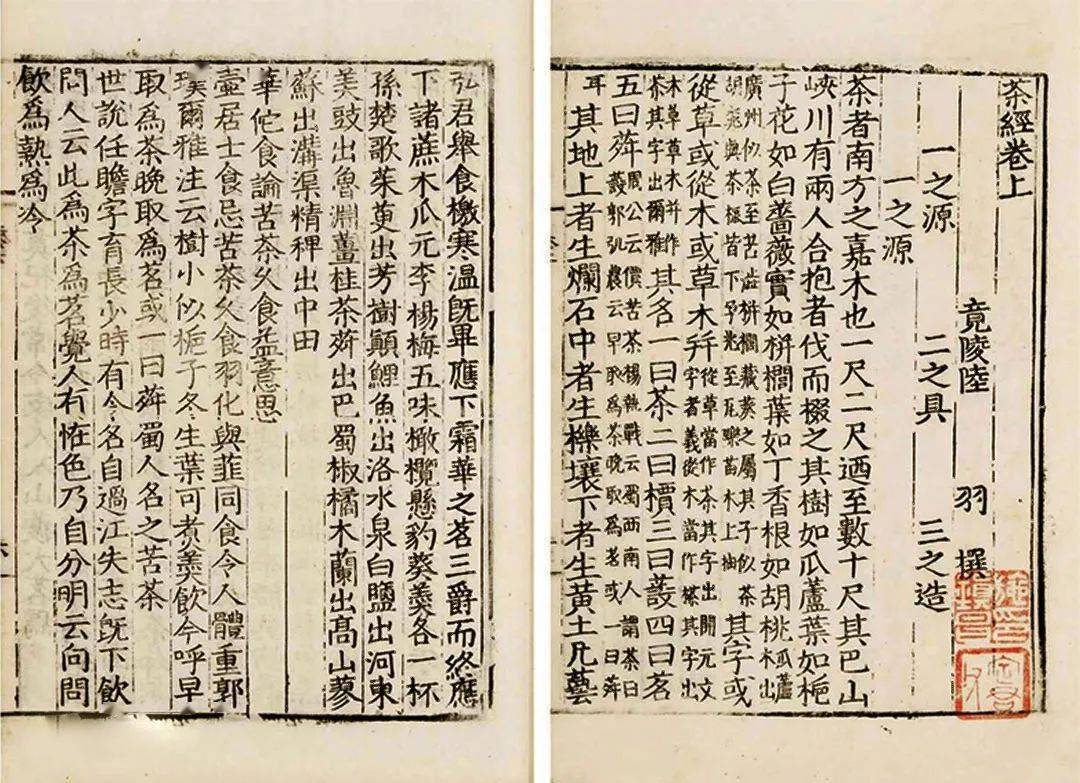 茶經卷上
竟陵陸 羽 撰
一之源 二之具 三之造
一之源
茶者南方之嘉木也一尺二尺廼至數十尺其巴山
峽川有兩人合抱者伐而掇之其樹如瓜蘆葉如梔
子花如白薔薇實如栟櫚葉如丁香根如胡桃瓜蘆木出
廣州似茶至苦澁栟櫚蒲葵之屬其子似茶胡桃與茶根皆下孕兆至瓦礫苗木上抽其字或
從草或從木或草木并從草當作茶其字出開元文字者義從木當作㮈其字出
本草草木并作荼其字出爾雅其名一曰茶二曰檟三曰蔎四曰茗
五曰荈周公云檟苦茶楊執戟云蜀西南人謂茶曰蔎郭弘農云早取爲茶晚取爲茗或一曰荈
耳其地上者生爛石中者生櫟壤下者生黃土凡藝
弘君舉食檄寒温旣畢應下霜華之茗三爵而終應
下諸蔗木瓜元李楊梅五味橄欖懸豹葵羹各一杯
孫楚歌茱萸出芳樹顛鯉魚出洛水泉白鹽出河東
美豉出魯淵薑桂茶荈出巴蜀椒橘木蘭出高山蓼
蘇出溝渠精稗出中田
華佗食論苦茶久食益意思
壺居士食忌苦茶久食羽化與韭同食令人體重郭
璞爾雅注云樹小似梔子冬生葉可煮羹飲今呼早
取爲茶晚取爲茗或一曰荈蜀人名之苦茶
世說任瞻字育長少時有令名自過江失志旣下飲
問人云此爲茶爲茗覺人有恠色乃自分明云向問
飲爲熱爲冷